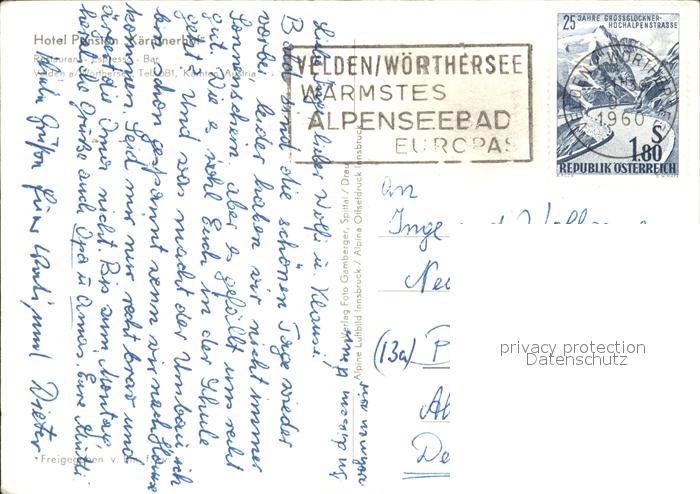 Hotel Pension "Kärntnerhof"
Restaurant - Espresso - Bar
Velden a. Wörthersee, Tel. 681, Kärnten, Austria
VELDEN/WÖRTHERSEE
WÄRMSTES
ALPENSEEBAD
EUROPAS
25 JAHRE GROSSGLOCKNER-
HOCHALPENSTRASSE
1960
S
1.80
REPUBLIK ÖSTERREICH
lieber Wolfi u. Klausi!
Bald sind die schönen Tage wieder
vorbei, leider haben wir nicht immer
Sonnenschein, aber es gefällt uns recht
gut. Wie es wohl Euch in der Schule
geht. Und was macht der Umbau, ich
bin schon gespannt wenn wir nach Hause
kommen. Seid mir nur recht brav und
ärgert die Oma nicht. Bis zum Montag,
herzliche Grüße auch Opa u. Omas. Eure Mutti
Viele Grüße Eure und Dieter
Verlag Foto Gamberger, Spittal / Drau
Alpine Luftbild Innsbruck / Alpina Offsetdruck Innsbruck
An
Inge
(13a)
privacy protection
Datenschutz
Freigegeben v.